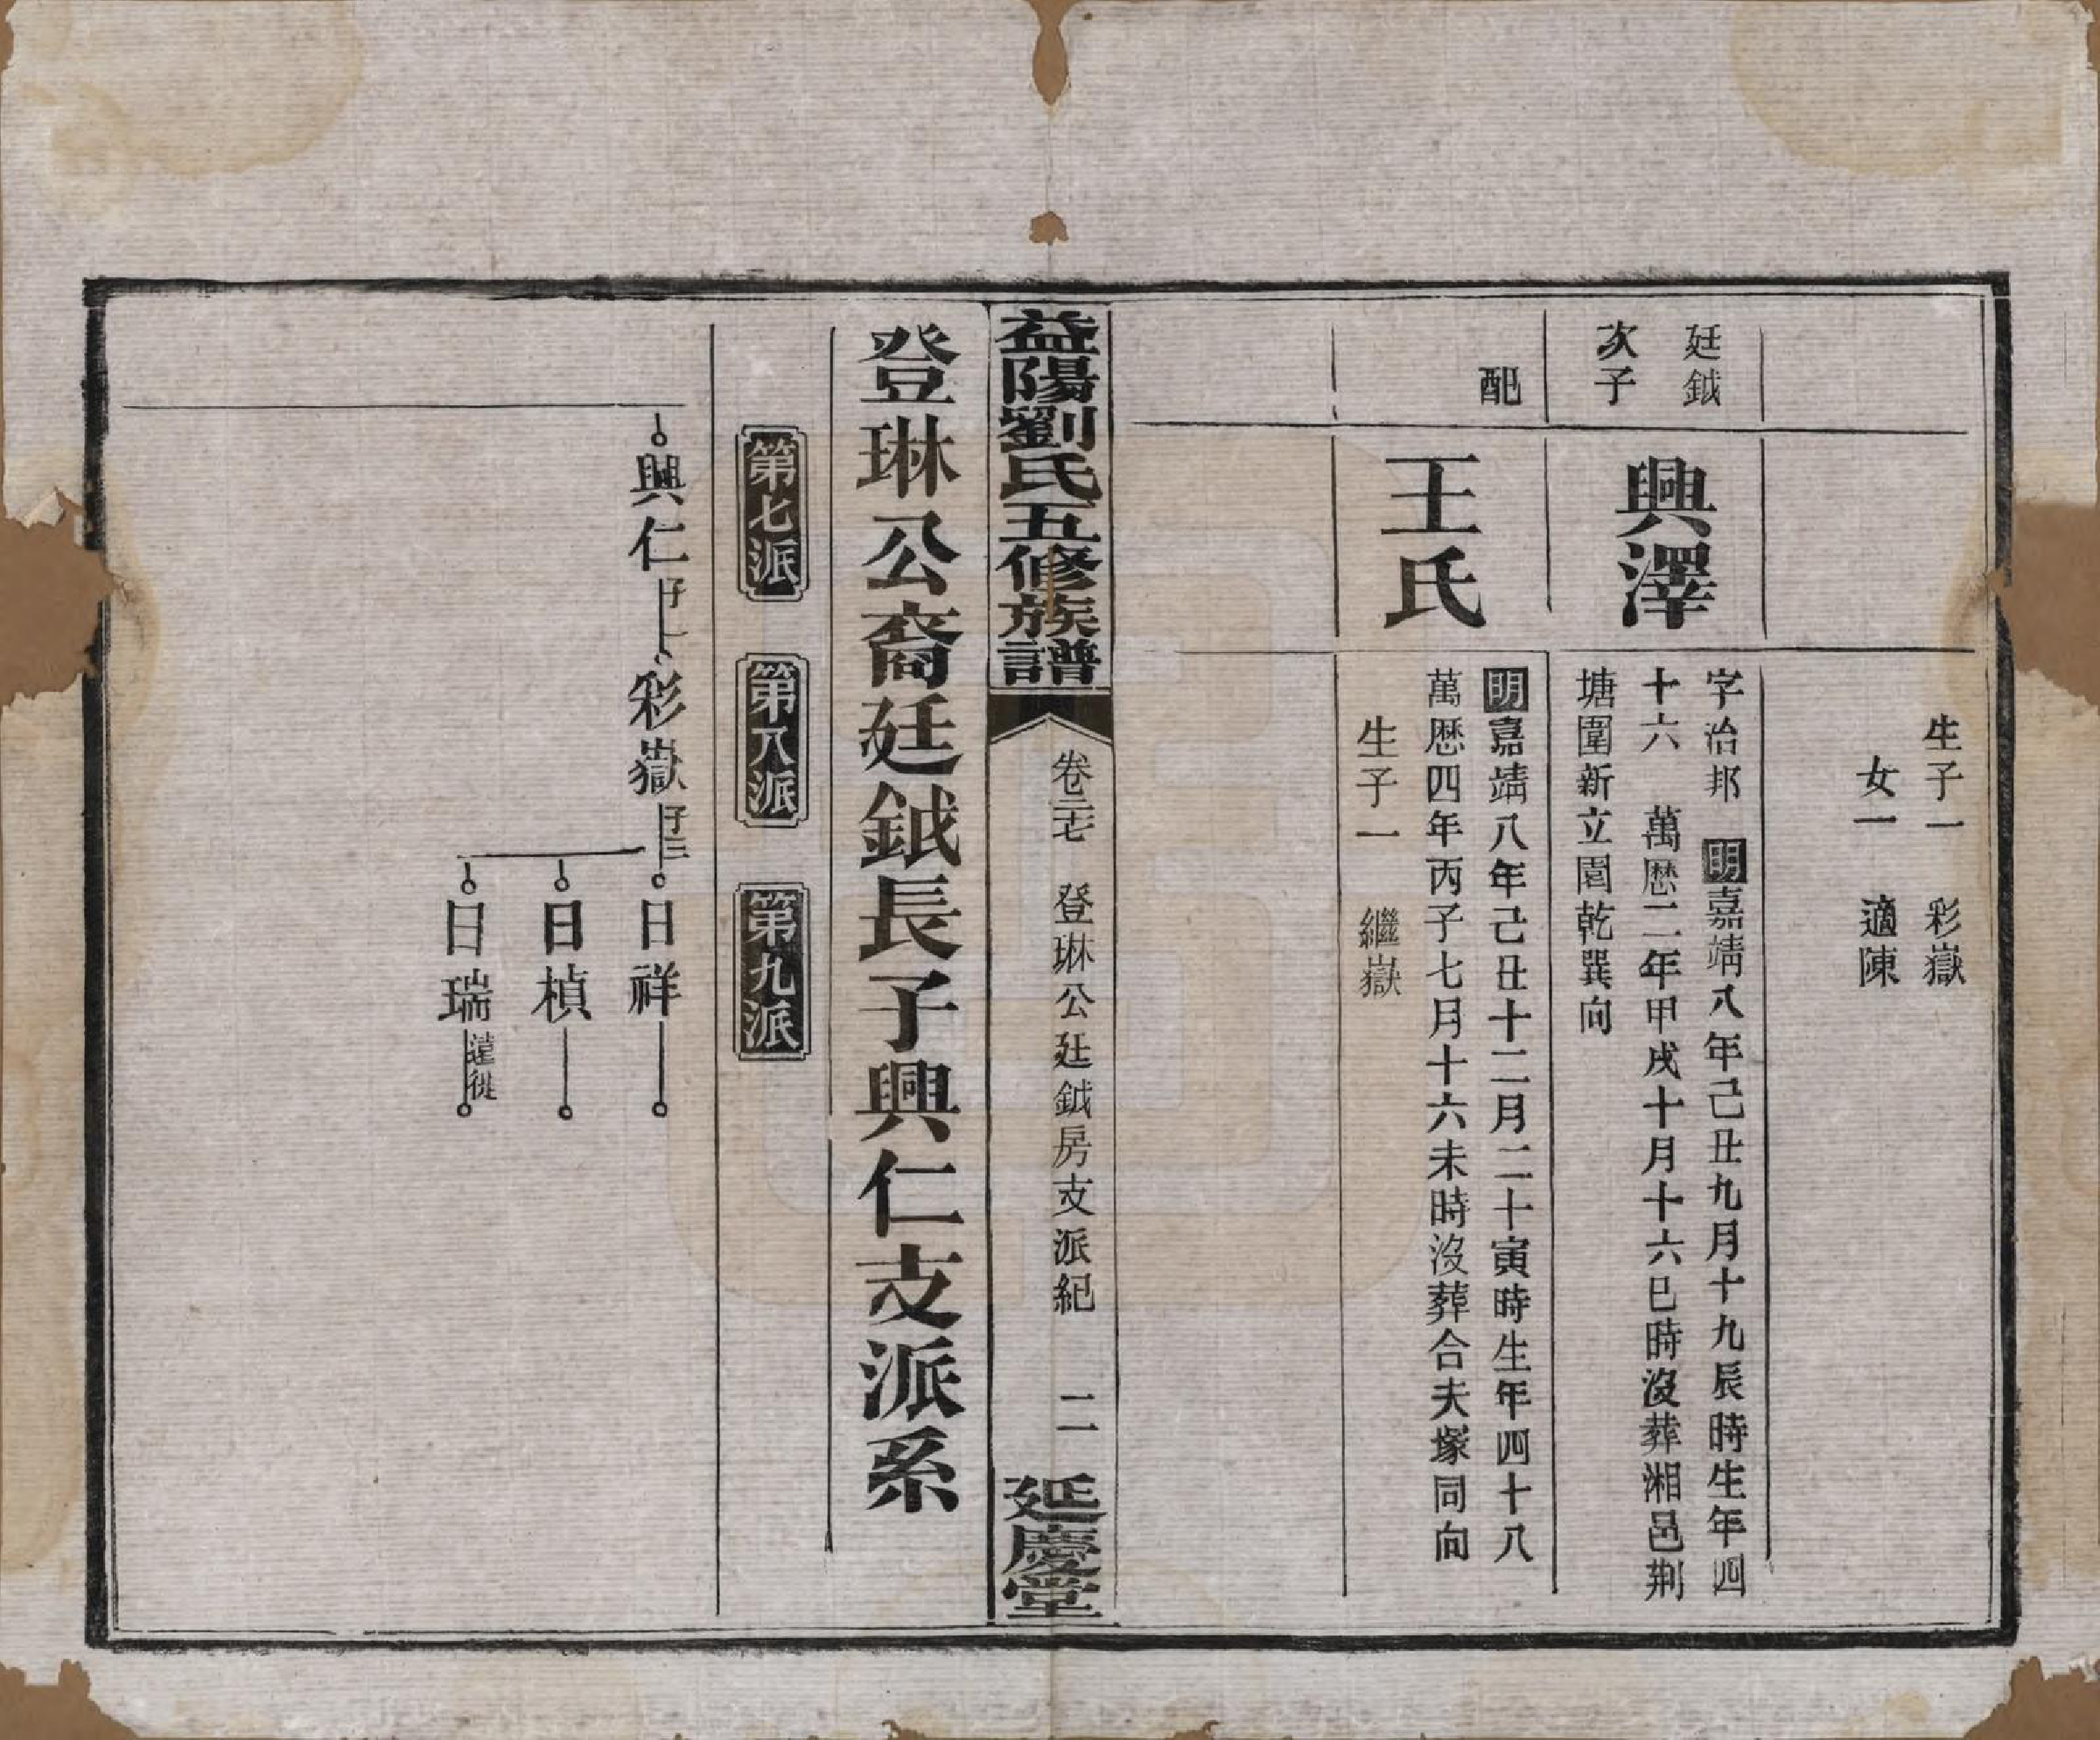 生子一　彩嶽
女一　適陳
廷鉞
次子
興澤
字治邦　明嘉靖八年己丑九月十九辰時生年四
十六　萬歷二年甲戌十月十六巳時沒葬湘邑荆
塘圍新立園乾巽向
配
王氏
明嘉靖八年己丑十二月二十寅時生年四十八
萬歷四年丙子七月十六未時沒葬合夫塚同向
生子一　繼嶽
益陽劉氏五修族譜
卷三七　登琳公廷鉞房支派紀　二
延慶堂
登琳公裔廷鉞長子興仁支派系
第七派　第八派　第九派
興仁　子一　彩嶽　子三　日祥
日楨
日瑞